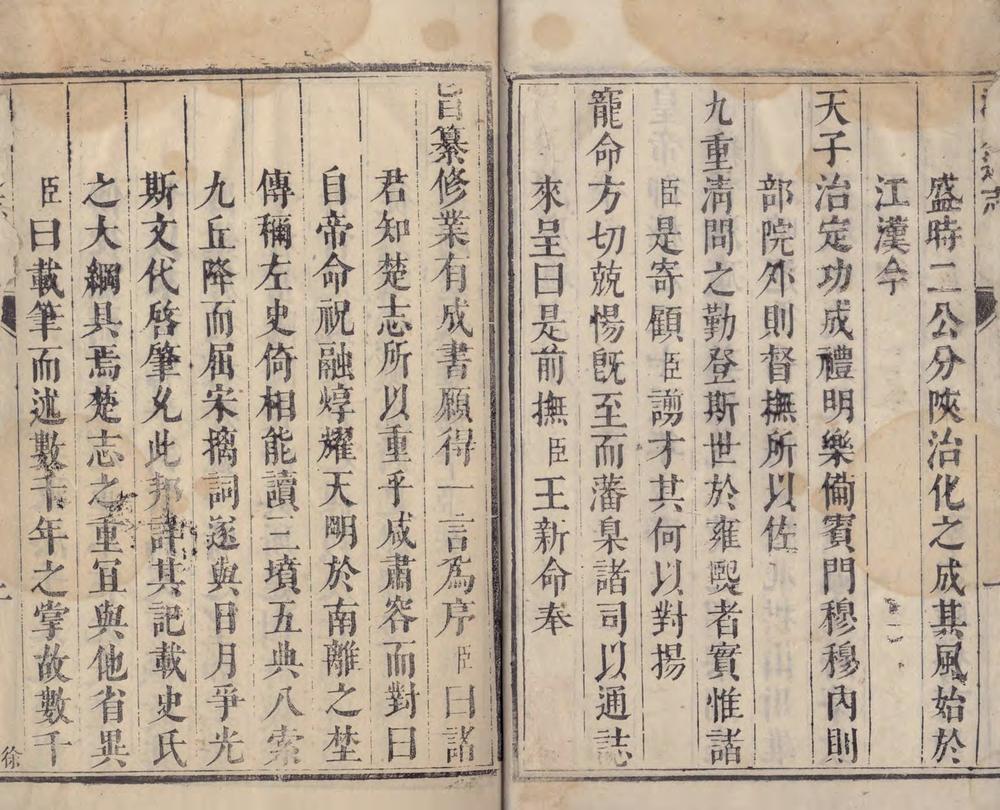 盛時二公分陜治化之成其風始於
江漢今
天子治定功成禮明樂備賓門穆穆內則
部院外則督撫所以佐
九重清問之勤登斯世於雍熙者實惟諸
臣是寄顧臣謭才其何以對揚
寵命方切兢惕既至而藩臬諸司以通誌
來呈曰是前撫臣王新命奉
旨纂修業有成書願得一言為序臣曰諸
君知楚志所以重乎咸肅容而對曰
自帝命祝融焞耀天明於南離之埜
傳稱左史倚相能讀三墳五典八索
九丘降而屈宋摛詞遂與日月爭光
斯文代啓肇允此邦詳其記載史氏
之大綱具焉楚志之重宜與他省異
臣曰載筆而述數千年之掌故數千
徐